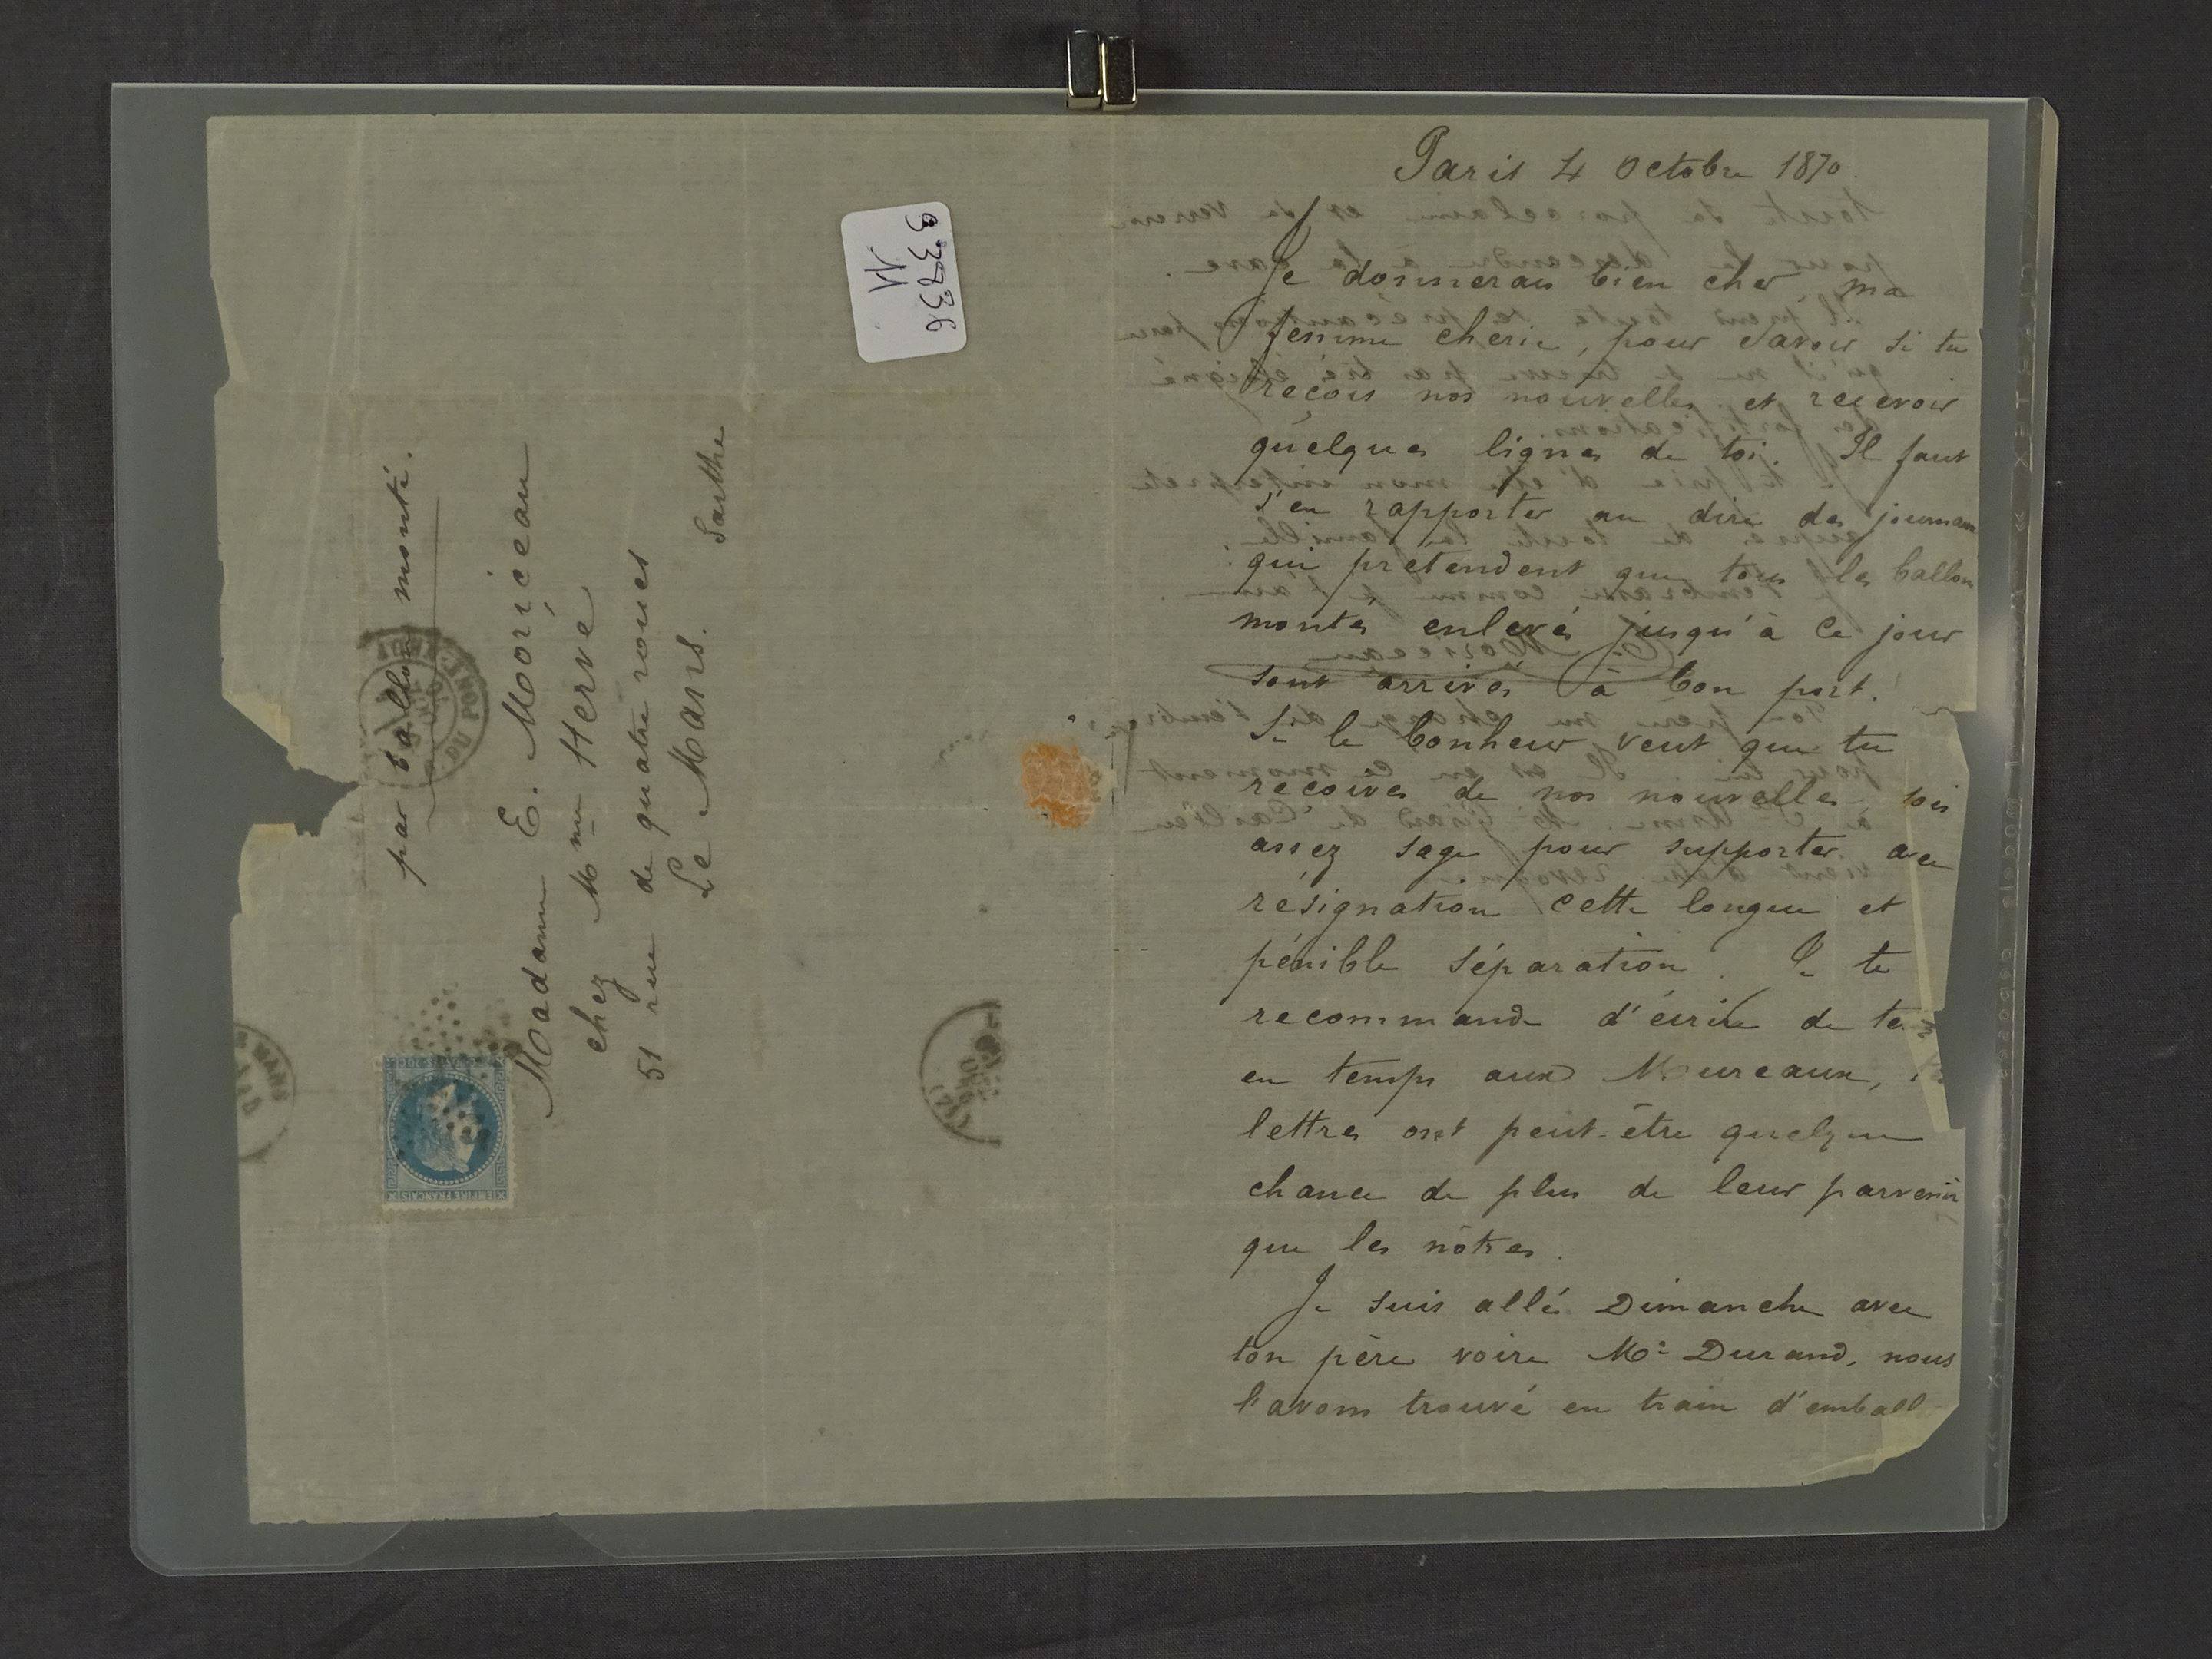 par ballon monté.
Madame E. Moriceau
chez Mme Hervé
51 rue de quatre roues
Le Mans. Sarthe
EMPIRE FRANCAIS
MANS
33836
11
Paris 4 Octobre 1870.
Je donnerais bien cher ma
femme cherie, pour savoir si tu
reçois nos nouvelles et recevoir
quelques lignes de toi. Il faut
s'en rapporter au dire des journaux
qui prétendent que tous les ballons
montés enlevés jusqu'à ce jour
sont arrivés à bon port.
Si le bonheur veut que tu
recoives de nos nouvelles, sois
assez sage pour supporter avec
résignation cette longue et
pénible séparation. Je te
recommande d'écrire de
en temps aux Mureaux,
lettres ont peut-être quelque
chance de plus de leur parvenir
que les nôtres.
Je suis allé Dimanche avec
ton père voire Mr Durand, nous
l'avons trouvé en train d'emball